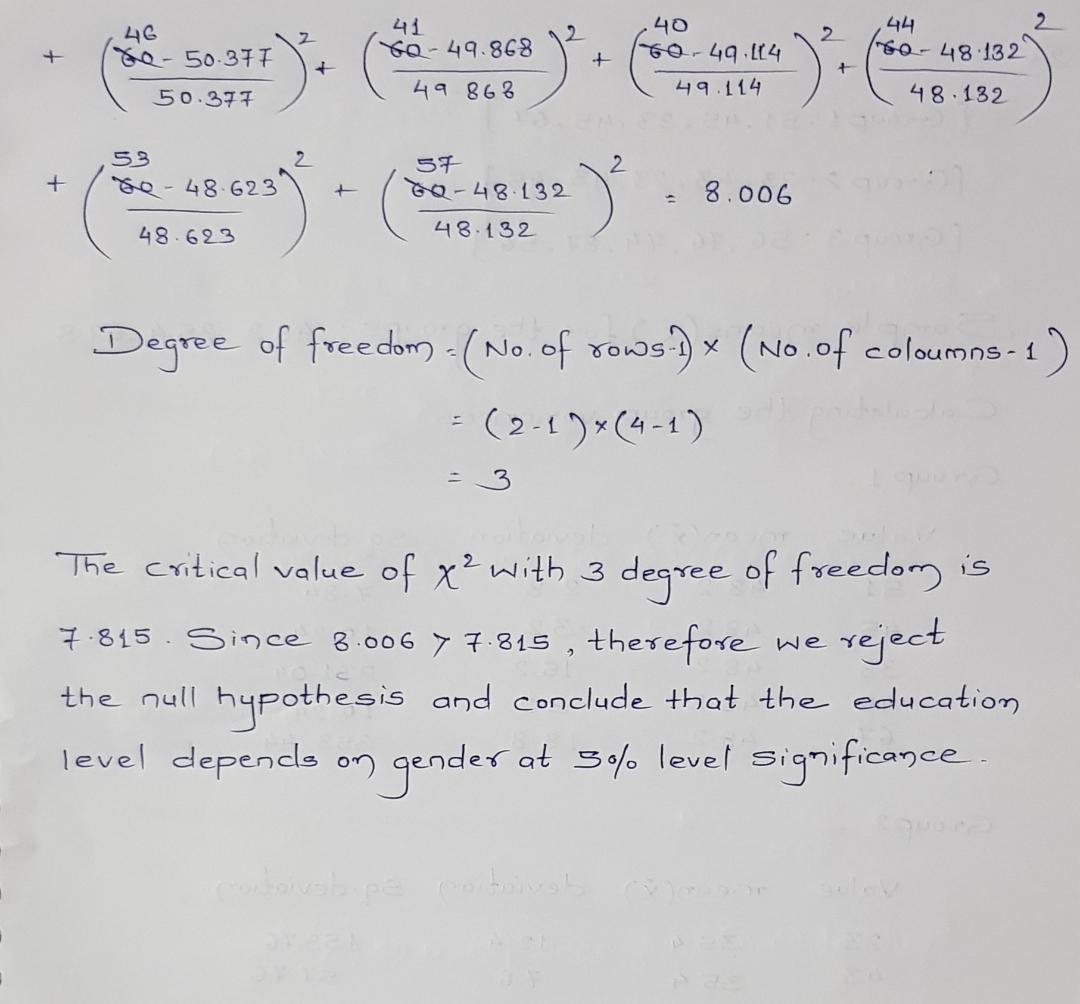 + (46 6̶0̶ - 50.377 / 50.377)² + (41 6̶0̶ - 49.868 / 49 868)² + (40 6̶0̶ - 49.114 / 49.114)² + (44 6̶0̶ - 48.132 / 48.132)²
+ (53 6̶0̶ - 48.623 / 48.623)² + (57 6̶0̶ - 48.132 / 48.132)² = 8.006
Degree of freedom = (No. of rows-1) × (No. of coloumns-1)
= (2-1)×(4-1)
= 3
The critical value of x² with 3 degree of freedom is
7.815. Since 8.006 > 7.815, therefore we reject
the null hypothesis and conclude that the education
level depends on gender at 5% level significance.